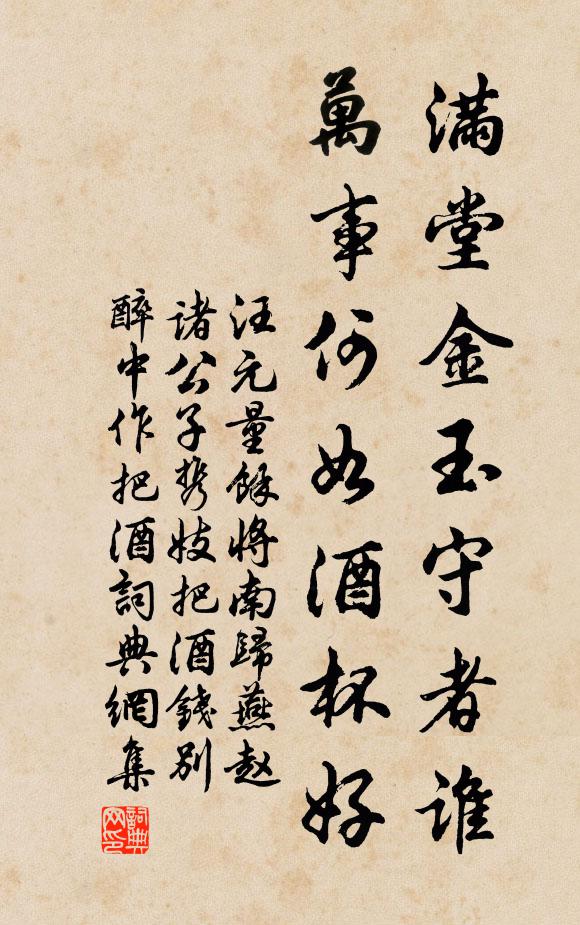 滿堂金玉守者誰
萬事何如酒杯好
汪元量餘將南歸燕趙
諸公子携妓把酒錢別
醉中作把酒詞典網集
詞典網印